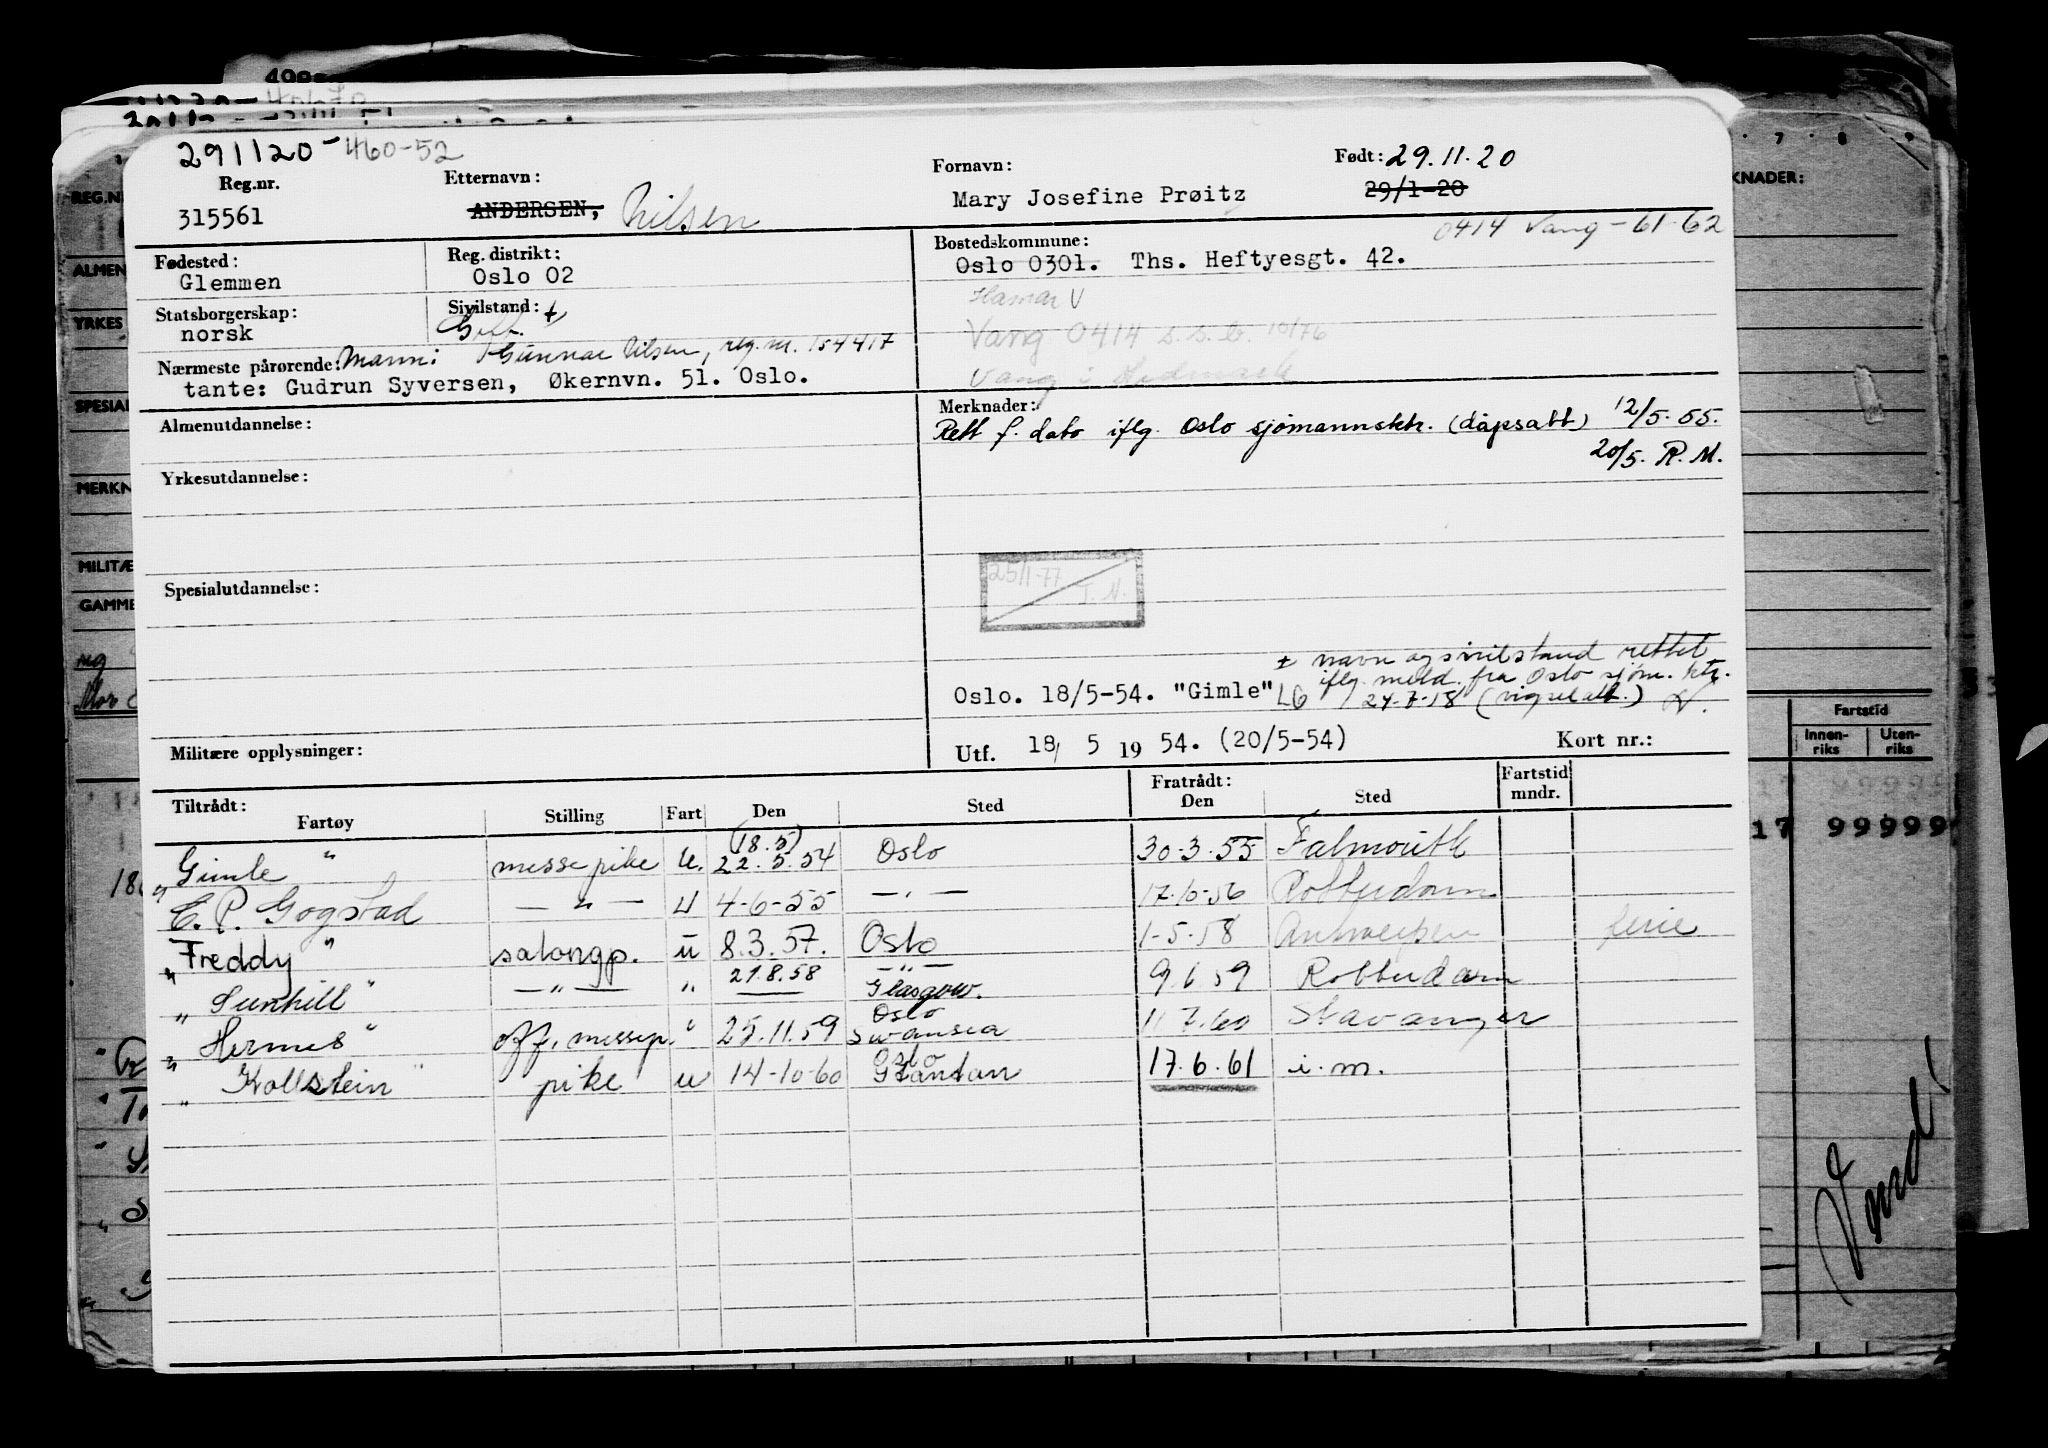 291120-460-52
Reg.nr. Etternavn: Fornavn: Født: 29.11.20
315561 ANDERSEN, Nilsen Mary Josefine Prøitz 29/1-20
0414 Vang -61-62
Fødested: Reg. distrikt: Bostedskommune:
Glemmen Oslo 02 Oslo 0301. Ths. Heftyesgt. 42.
Hamar V
Statsborgerskap: Sivilstand: ±
norsk Gift.
Vang 0414 s.s.b. 10/76
Nærmeste pårørende: Mann: Gunnar Nilsen, reg.nr. 154417
tante: Gudrun Syversen, Økernvn. 51. Oslo.
Vang i Hedmark
Almenutdannelse: Merknader:
Rett f. dato iflg. Oslo sjømannsktr. (dåpsatt) 12/5-55.
20/5. R.M.
Yrkesutdannelse:
25/1-77
T.N.
Spesialutdannelse:
± navn og sivilstand rettet
iflg. meld. fra Oslo sjøm. ktr.
Oslo. 18/5-54. "Gimle" LG 24-7-58 (vigselatt.)
Militære opplysninger: Utf. 18/ 5 19 54. (20/5-54) Kort nr.:
Tiltrådt: Fratrådt: Fartstid
Fartøy Stilling Fart Den Sted Den Sted mndr.
(18.5)
" Gimle " messepike u. 22.5.54 Oslo 30-3-55 Falmouth
" C. P. Gogstad — " — u 4-6-55 — " — 17-10-56 Rotterdam
" Freddy " salongp. u 8.3.57. Oslo 1-5-58 Antwerpen ferie
" Sunhill " — " — " 21.8.58 — " — Glasgow. 9.6.59 Rotterdam
" Hermes " off. messep. " 25.11.59 Oslo Swansea 11.7.60 Stavanger
" Kollstein " pike u 14-10-60 Oslo Stantan 17.6.61 i.m.
REG.N
ALMEN
YRKES
SPESIAL
MERKN
MILITÆ
GAMME
KNADER:
7 8 9
Fartstid
Innen-riks Uten-riks
17 99999